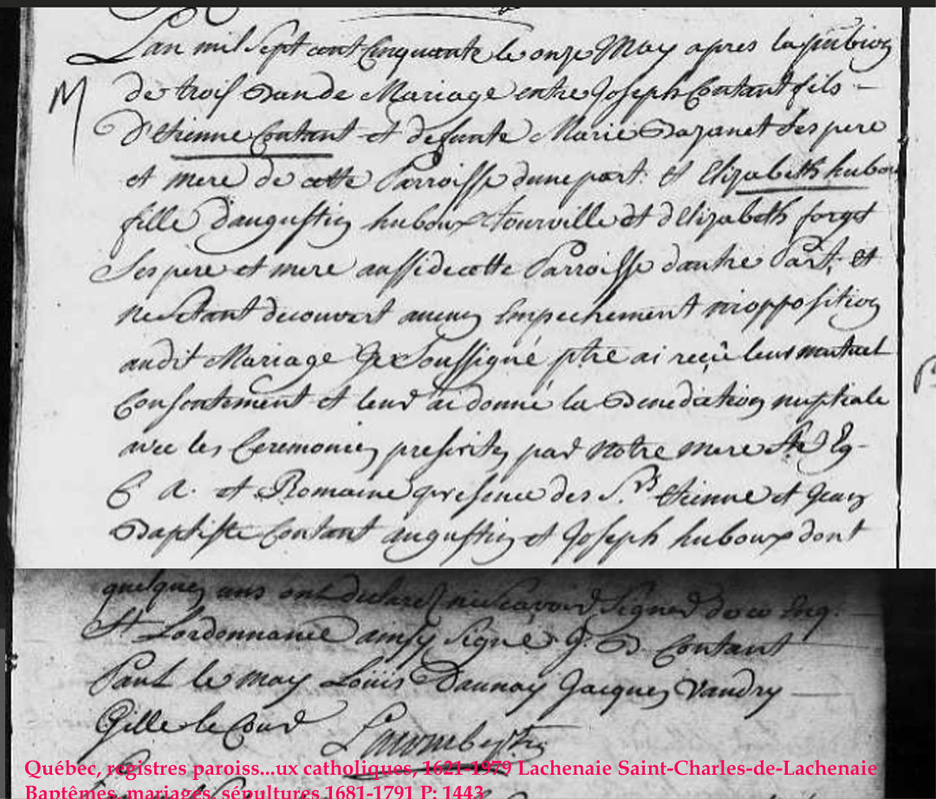 Lan mil Sept cent Cinquante le onze May apres la publion
M
de trois Ban de Mariage entre Joseph Contant fils
D'Etienne Contant et defunte Marie Dazanet Ses pere
et mere de cette Parroisse dune part. Et Elizabeth hubou
fille D'augustin huboux tourville et d'Elizabeth forget
Ses pere et mere aussi de cette Parroisse dautre Part, et
ne setant decouvert aucun Empechement ni opposition
audit Mariage Je Soussigné ptre ai reçû leur mutuel
Consentement et leur ai donné la Benediction nuptiale
avec les Ceremonies prescrites par Notre mere Ste Eg-
C A. et Romaine presence des S.rs Etienne et Jean
Baptiste Contant augustin et Joseph huboux dont
quelques uns ont declare ne scavoir Signer de ce Enq.
St Lordonnance ainsy Signé J. B Contant
Paul le may Louis Daunay Jacques Vaudry
Gille le Cour
Québec, registres paroiss...ux catholiques, 1621-1979 Lachenaie Saint-Charles-de-Lachenaie
Baptêmes, mariages, sépultures 1681-1791 P: 1443